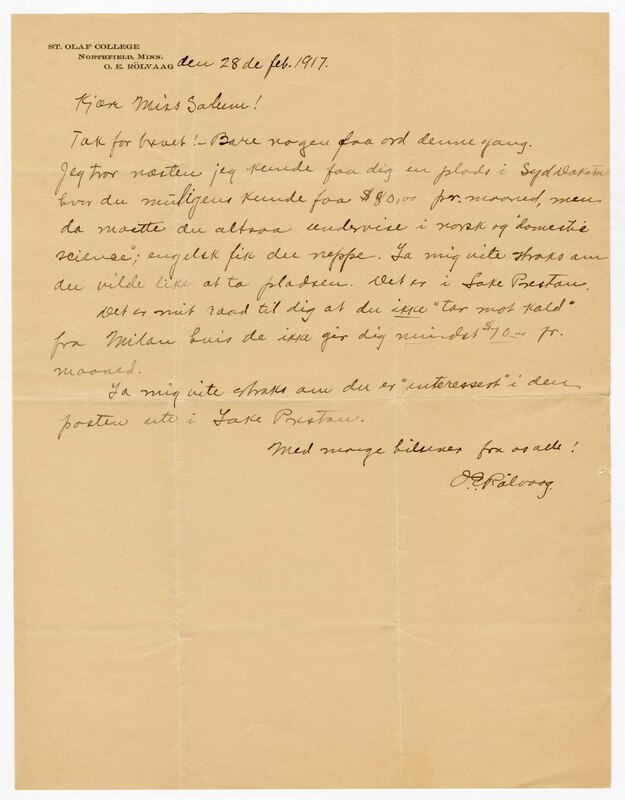 ST. OLAF COLLEGE
NORTHFIELD, MINN.
O. E. RÖLVAAG den 28de feb. 1917.
Kjære Miss Salum!
Tak for brevet! – Bare nogen faa ord denne gang.
Jeg tror næsten jeg kunde faa dig en plads i Syd Dakota
hvor du muligens kunde faa $80,00 pr. maaned, men
da maatte du altsaa undervise i norsk og "domestic
science"; engelsk fik du neppe. La mig vite straks om
du vilde like at ta pladsen. Det er i Lake Preston.
Det er mit raad til dig at du ikke "tar mot kald"
fra Milan hvis de ikke gir dig mindst $70.00 pr.
maaned.
La mig vite straks om du er "interessert" i den
posten ute i Lake Preston.
Med mange hilsener fra os alle!
O.E. Rölvaag.